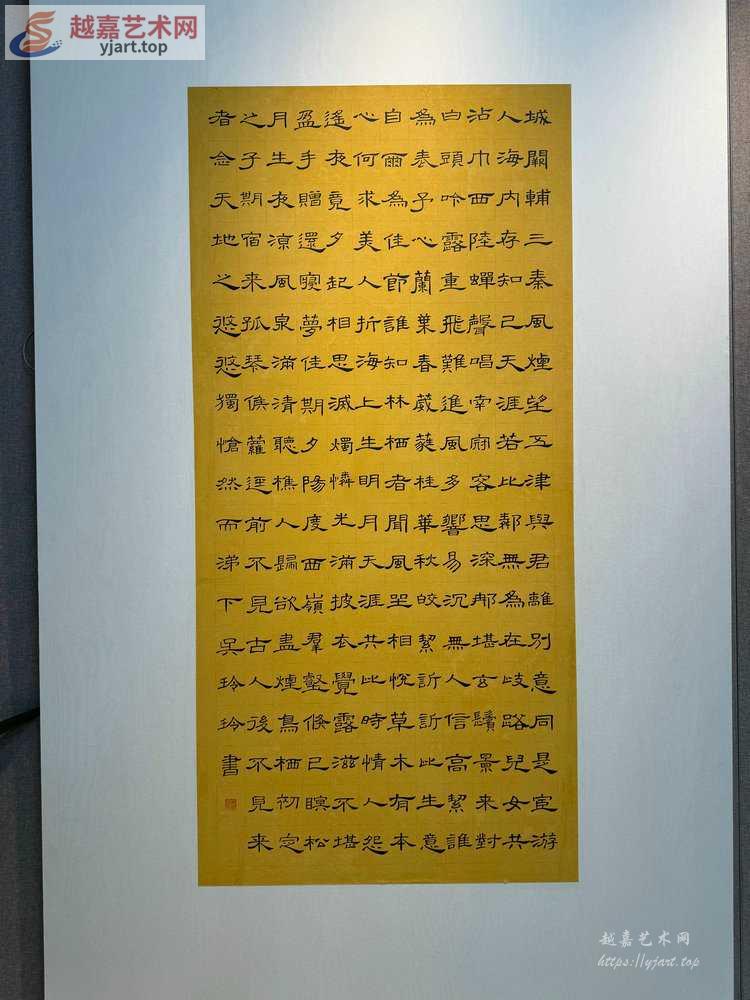 越嘉艺术网
yjart.top
城闕輔三秦風煙望五津與君離別意同是宦游
人海内存知己天涯若比鄰無為在歧路兒女共
沾巾西陸蟬聲唱南冠客思深那堪玄鬢景来對
白頭吟露重飛難進風多響易沉無人信高絜誰
為表予心蘭葉春葳蕤桂華秋皎絜訢訢此生意
自爾為佳節誰知林栖者聞風坐相悅草木有本
心何求美人折海上生明月天涯共此時情人怨
遙夜竟夕起相思滅燭憐光滿披衣覺露滋不堪
盈手贈還寢夢佳期夕陽度西嶺羣壑倏已暝松
月生夜涼風泉滿清聽樵人歸欲盡煙鳥栖初定
之子期宿来孤琴候蘿逕前不見古人後不見来
者念天地之悠悠獨愴然而涕下吳玲玲書
越嘉艺术网
https://yjart.top